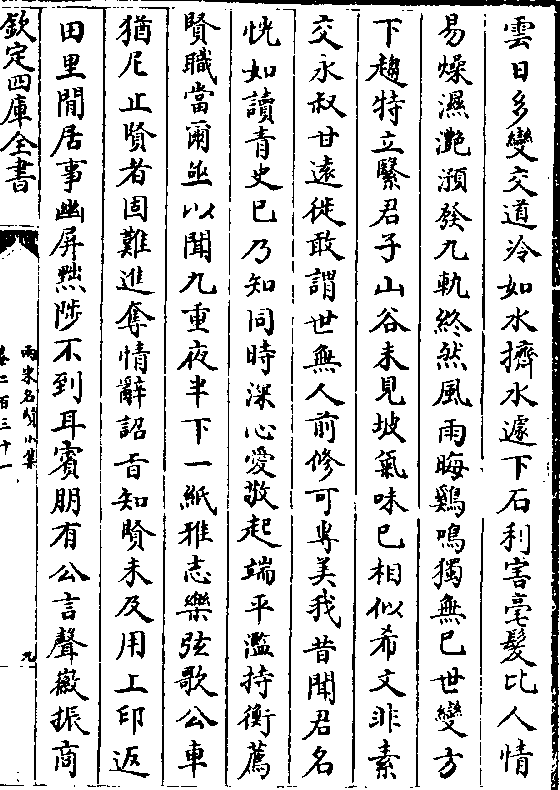 雲日多變交道冷如水擠水遽下石利害毫髮比人情
易燥濕灔澦發九軌終然風雨晦鷄鳴獨無已世變方
下趨特立緊君子山谷未見坡氣味已相似希文非素
交永叔甘遠徙敢謂世無人前修可專美我昔聞君名
恍如讀青史已乃知同時深心愛敬起端平濫持衡薦
賢職當爾亟以聞九重夜半下一紙雅志樂弦歌公車
猶尼止賢者固難進奪情辭詔旨知賢未及用上印返
田里閒居事幽屏黜陟不到耳賓朋有公言聲徽振商
欽定四庫全書
兩宋名賢小集
卷二百三十一
九